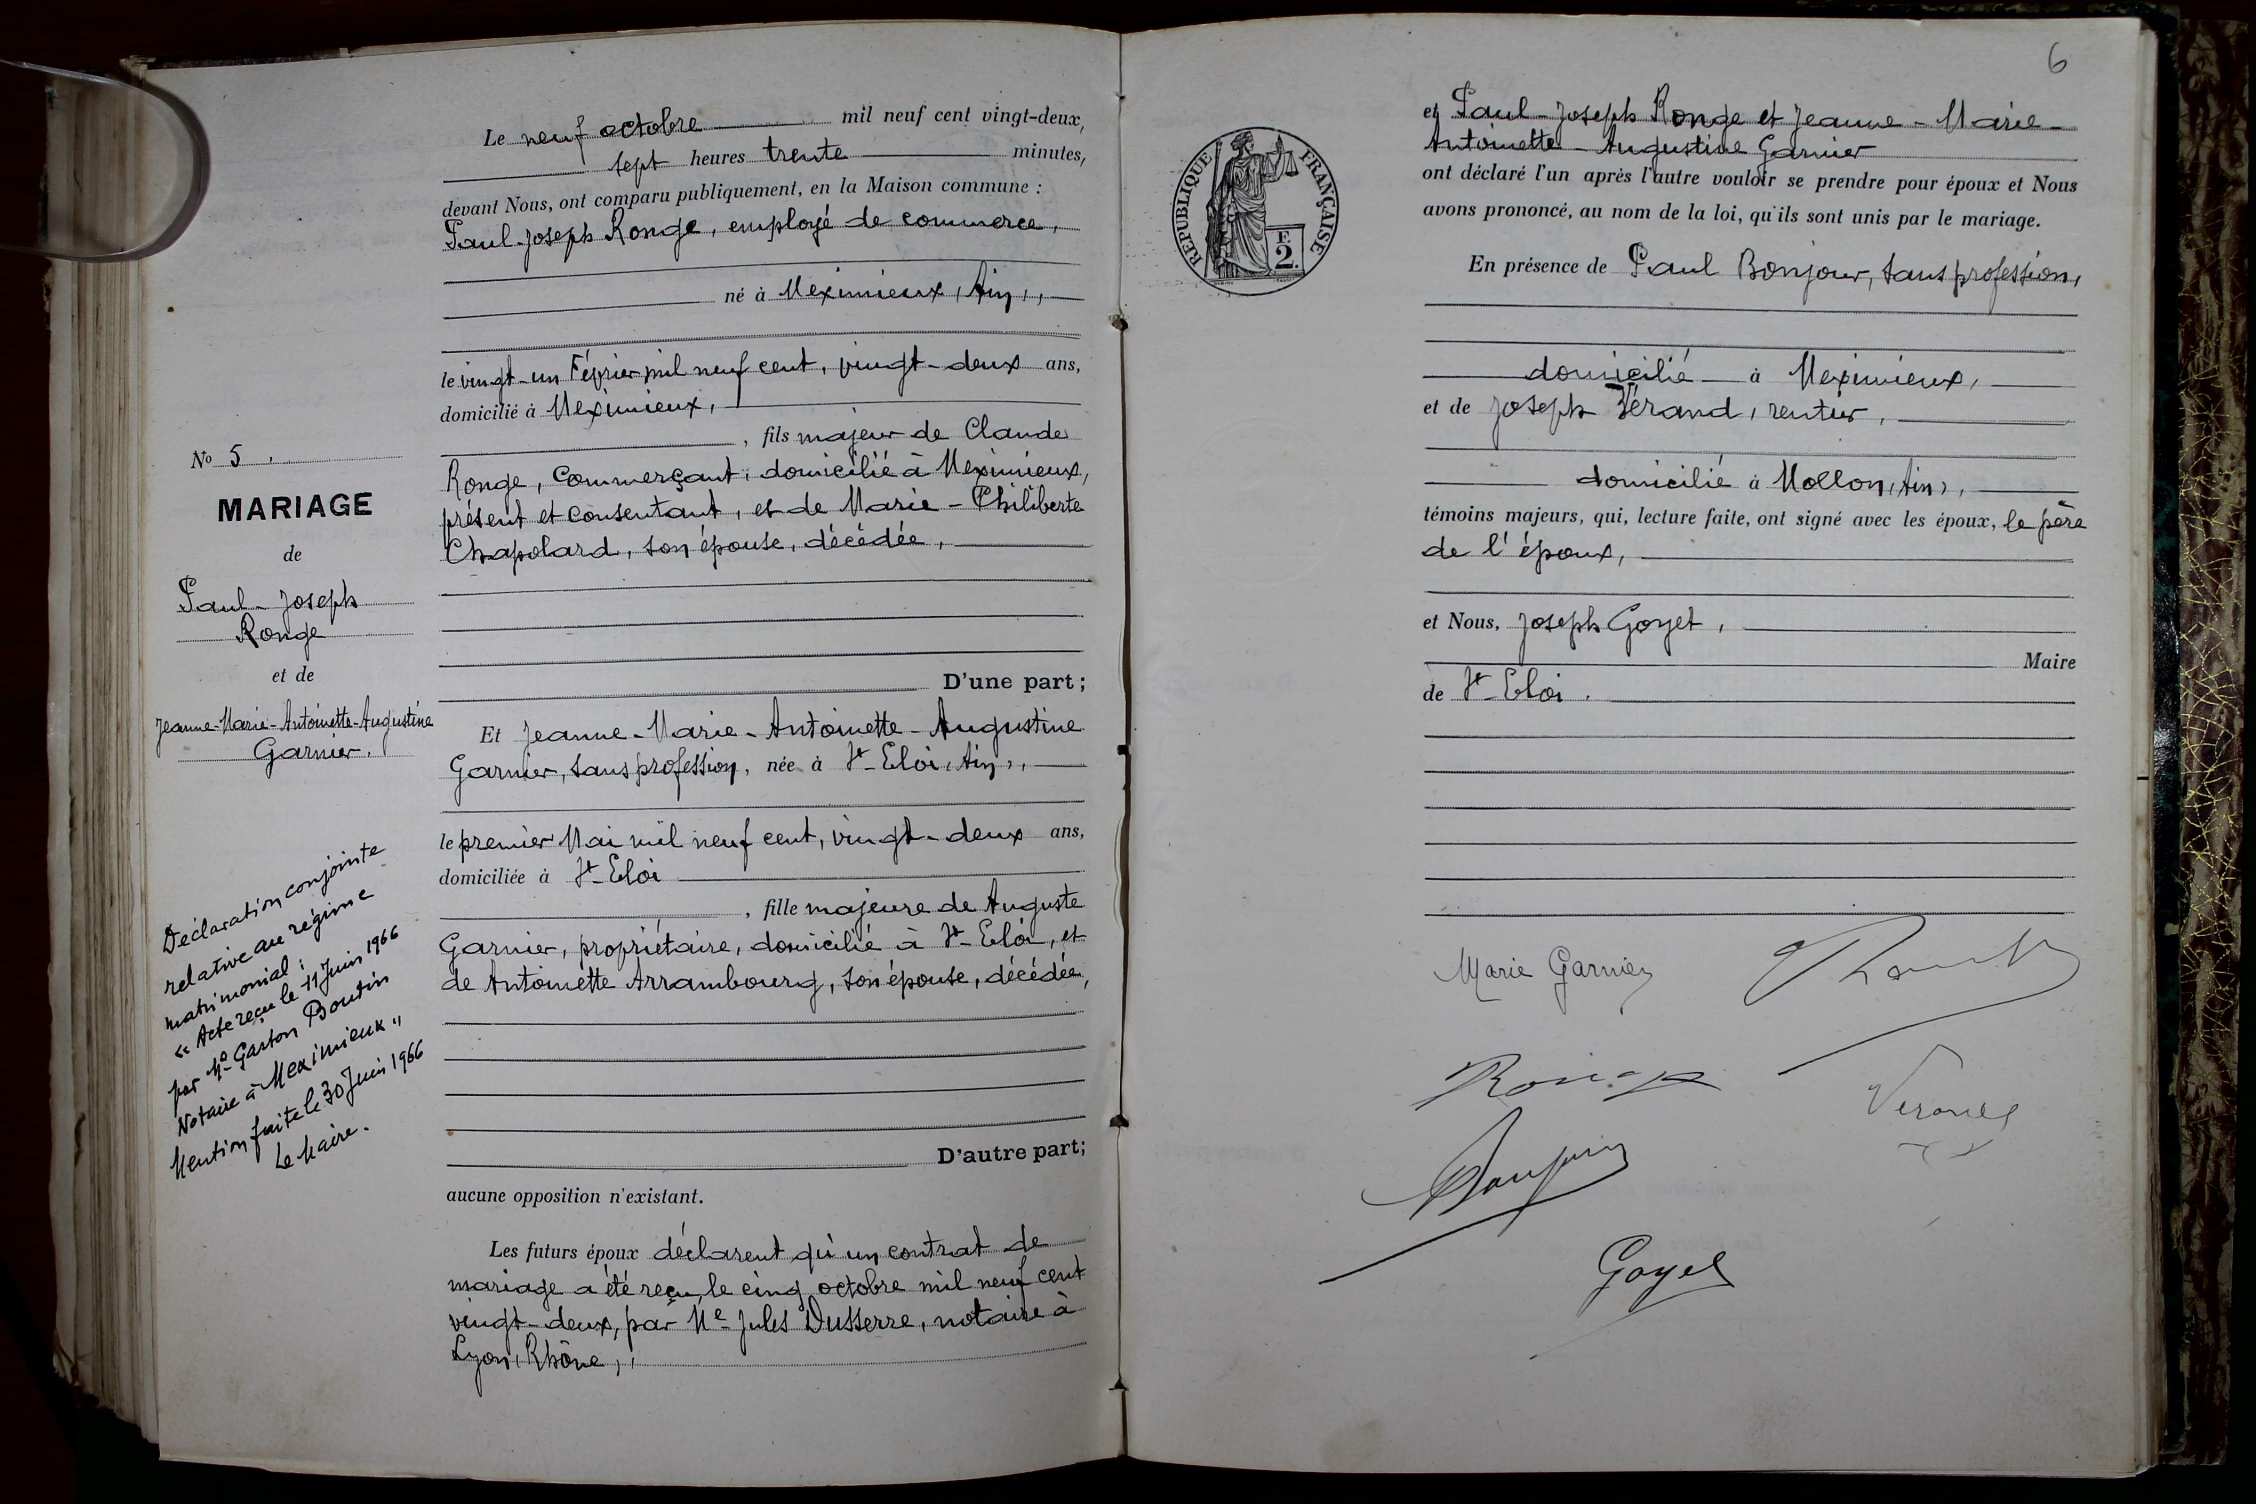 Le neuf octobre mil neuf cent vingt-deux,
sept heures trente minutes,
devant Nous, ont comparu publiquement, en la Maison commune :
Paul-Joseph Ronge, employé de commerce,
né à Meximieux, (Ain),
le vingt-un Février mil neuf cent, vingt-deux ans,
domicilié à Meximieux,
, fils majeur de Claude
Ronge, Commerçant, domicilié à Meximieux,
présent et consentant, et de Marie-Philiberte
Chapolard, son épouse, décédée,
D'une part;
Et Jeanne-Marie-Antoinette-Augustine
Garnier, sans profession, née à St-Eloi, (Ain),
le premier Mai mil neuf cent, vingt-deux ans,
domiciliée à St-Eloi
, fille majeure de Auguste
Garnier, propriétaire, domicilié à St-Eloi, et
de Antoinette Arrambourg, son épouse, décédée,
D'autre part;
aucune opposition n'existant.
Les futurs époux déclarent qu'un contrat de
mariage a été reçu, le cinq octobre mil neuf cent
vingt-deux, par Me Jules Dusserre, notaire à
Lyon, (Rhône),
No 5.
MARIAGE
de
Paul-Joseph
Ronge
et de
Jeanne-Marie-Antoinette-Augustine
Garnier.
Déclaration conjointe
relative au régime
matrimonial :
« Acte reçu le 11 Juin 1966
par Me Gaston Boutin
Notaire à Meximieux »
Mention faite le 30 Juin 1966
Le Maire.
6
RÉPUBLIQUE FRANÇAISE
F.
2.
et Paul-Joseph Ronge et Jeanne-Marie-
Antoinette-Augustine Garnier
ont déclaré l'un après l'autre vouloir se prendre pour époux et Nous
avons prononcé, au nom de la loi, qu'ils sont unis par le mariage.
En présence de Paul Bonjour, sans profession,
domicilié à Meximieux,
et de Joseph Vérand, rentier,
domicilié à Mollon, (Ain),
témoins majeurs, qui, lecture faite, ont signé avec les époux, le père
de l'époux,
et Nous, Joseph Goyet,
Maire
de St-Eloi.
Marie Garnier
Ronge
Goyet